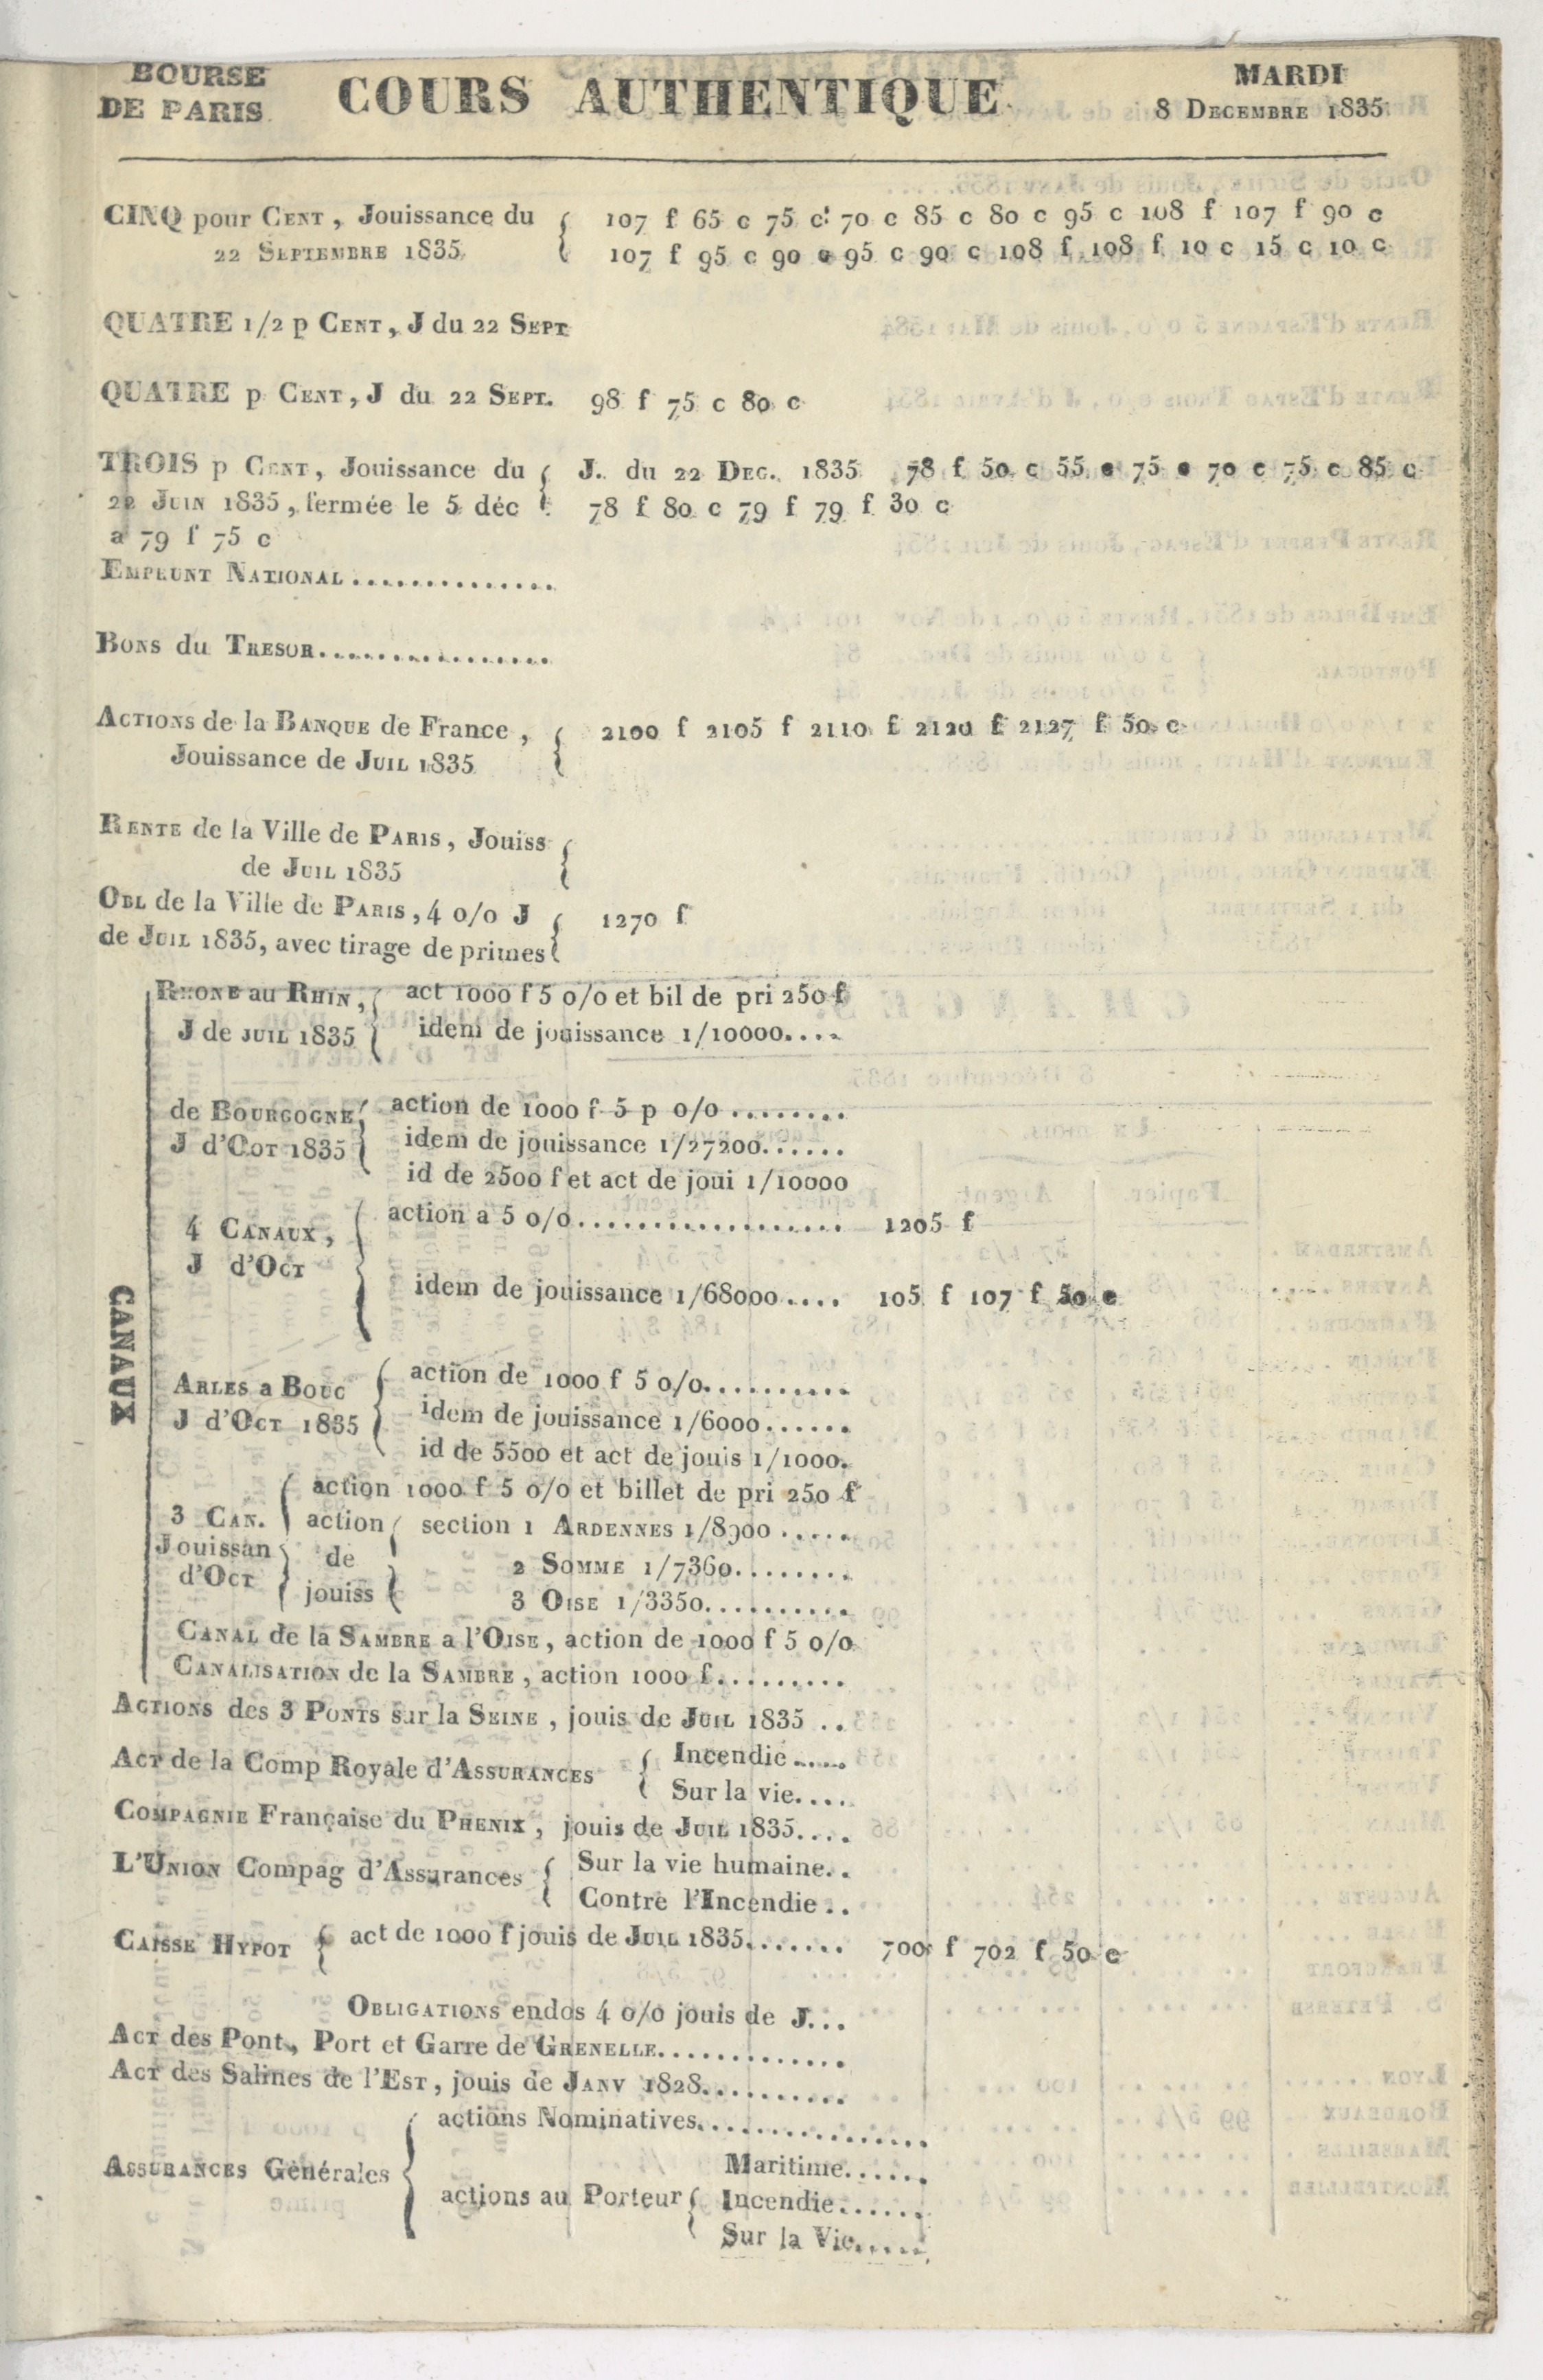 BOURSE
DE PARIS
COURS AUTHENTIQUE
MARDI
8 DECEMBRE 1835
CINQ pour CENT, Jouissance du
22 SEPTEMBRE 1835
107 f 65 c 75 c 70 c 85 c 80 c 95 c 108 f 107 f 90 c
107 f 95 c 90 c 95 c 90 c 108 f 108 f 10 c 15 c 10 c
QUATRE 1/2 p CENT, J du 22 SEPT
QUATRE p CENT, J du 22 SEPT. 98 f 75 c 80 c
TROIS p CENT, Jouissance du
22 JUIN 1835, fermée le 5 déc
a 79 f 75 c
J. du 22 DEC. 1835 78 f 50 c 55 c 75 c 70 c 75 c 85 c
78 f 80 c 79 f 79 f 30 c
EMPRUNT NATIONAL..............
BONS du TRESOR.................
ACTIONS de la BANQUE de France,
Jouissance de JUIL 1835
2100 f 2105 f 2110 f 2120 f 2127 f 50 c
RENTE de la Ville de PARIS, Jouiss
de JUIL 1835
OBL de la Ville de PARIS, 4 0/0 J
de JUIL 1835, avec tirage de primes
1270 f
CANAUX
RHONE au RHIN,
J de JUIL 1835
act 1000 f 5 0/0 et bil de pri 250 f
idem de jouissance 1/10000....
de BOURGOGNE,
J d'OCT 1835
action de 1000 f 5 p 0/0........
idem de jouissance 1/27200......
id de 2500 f et act de joui 1/10000
4 CANAUX,
J d'OCT
action a 5 0/0.................. 1205 f
idem de jouissance 1/68000.... 105 f 107 f 50 c
ARLES a BOUC
J d'OCT 1835
action de 1000 f 5 0/0..........
idem de jouissance 1/6000......
id de 5500 et act de jouis 1/1000.
3 CAN.
Jouissan
d'OCT
action 1000 f 5 0/0 et billet de pri 250 f
action
de
jouiss
section 1 ARDENNES 1/8900.....
2 SOMME 1/7360........
3 OISE 1/3350..........
CANAL de la SAMBRE a l'OISE, action de 1000 f 5 0/0
CANALISATION de la SAMBRE, action 1000 f.........
ACTIONS des 3 PONTS sur la SEINE, jouis de JUIL 1835 ..
ACT de la Comp Royale d'ASSURANCES
Incendie.....
Sur la vie....
COMPAGNIE Française du PHENIX, jouis de JUIL 1835....
L'UNION Compag d'Assurances
Sur la vie humaine..
Contre l'Incendie..
CAISSE HYPOT
act de 1000 f jouis de JUIL 1835....... 700 f 702 f 50 c
OBLIGATIONS endos 4 0/0 jouis de J...
ACT des Pont, Port et Garre de GRENELLE.............
ACT des Salines de l'EST, jouis de JANV 1828..........
ASSURANCES Générales
actions Nominatives................
actions au Porteur
Maritime......
Incendie......
Sur la Vie.....